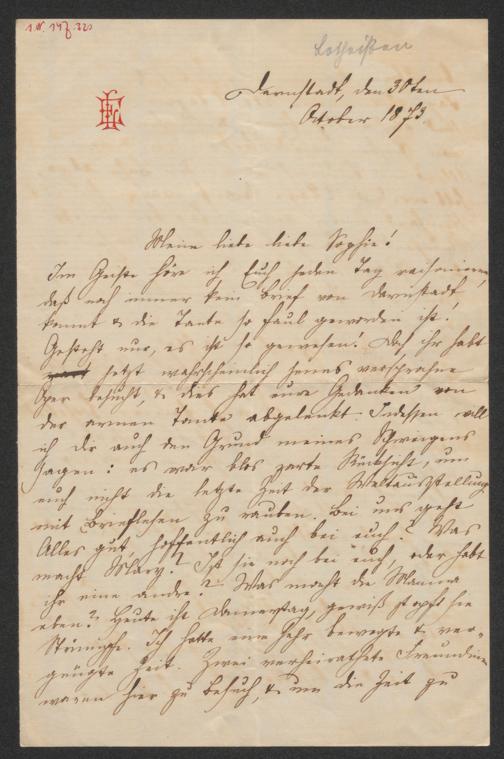 I.N. 147.220
Lotheißen
Darmstadt, den 30ten
October 1873
Meine liebe liebe Sophie!
Im Geiste höre ich Euch jeden Tag raisonniren,
daß noch immer kein Brief von Darmstadt
kommt & die Tante so faul geworden ist.
Gesteht nur, es ist so gewesen. Doch ihr habt
jetzt wahrscheinlich jenes versprochne
Oper besucht, & dies hat eure Gedanken von
der armen Tante abgelenkt. Indessen will
ich dir auch den Grund meines Schweigens
sagen: es war blos zarte Rücksicht, um
euch nicht die letzte Zeit der Weltausstellung
mit Brieflesen zu rauben. Bei uns geht
Alles gut, hoffentlich auch bei euch? Was
macht Mary? Ist sie noch bei euch, oder habt
ihr eine andre? Was macht die Mama
eben? Heute ist Donnerstag, gewiß stopft sie
Strümpfe. Ich hatte eine sehr bewegte & ver-
gnügte Zeit. Zwei verheirathete Freundinnen
waren hier zu Besuch, & um die Zeit zu